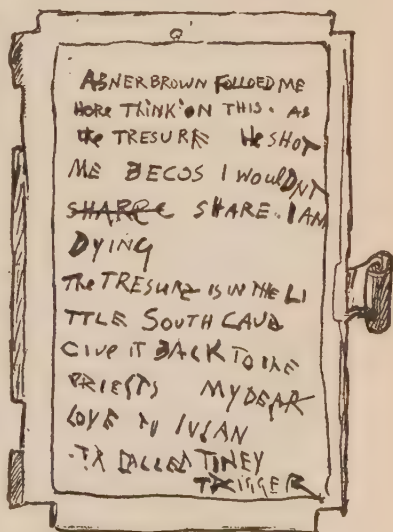 ABNER BROWN FOLLOED ME
HORE THINK'ON THIS. AS
the TRESURE He SHOT
ME BECOS I WoulDNT
SHARRE SHARE. I AM
DYING
The TRESURE IS IN THE LI
TTLE SOUTH CAVE
GIVE IT BACK TO THE
PRIESTS MY DEAR
LOVE TO
CALLED TINEY
TRIGGER